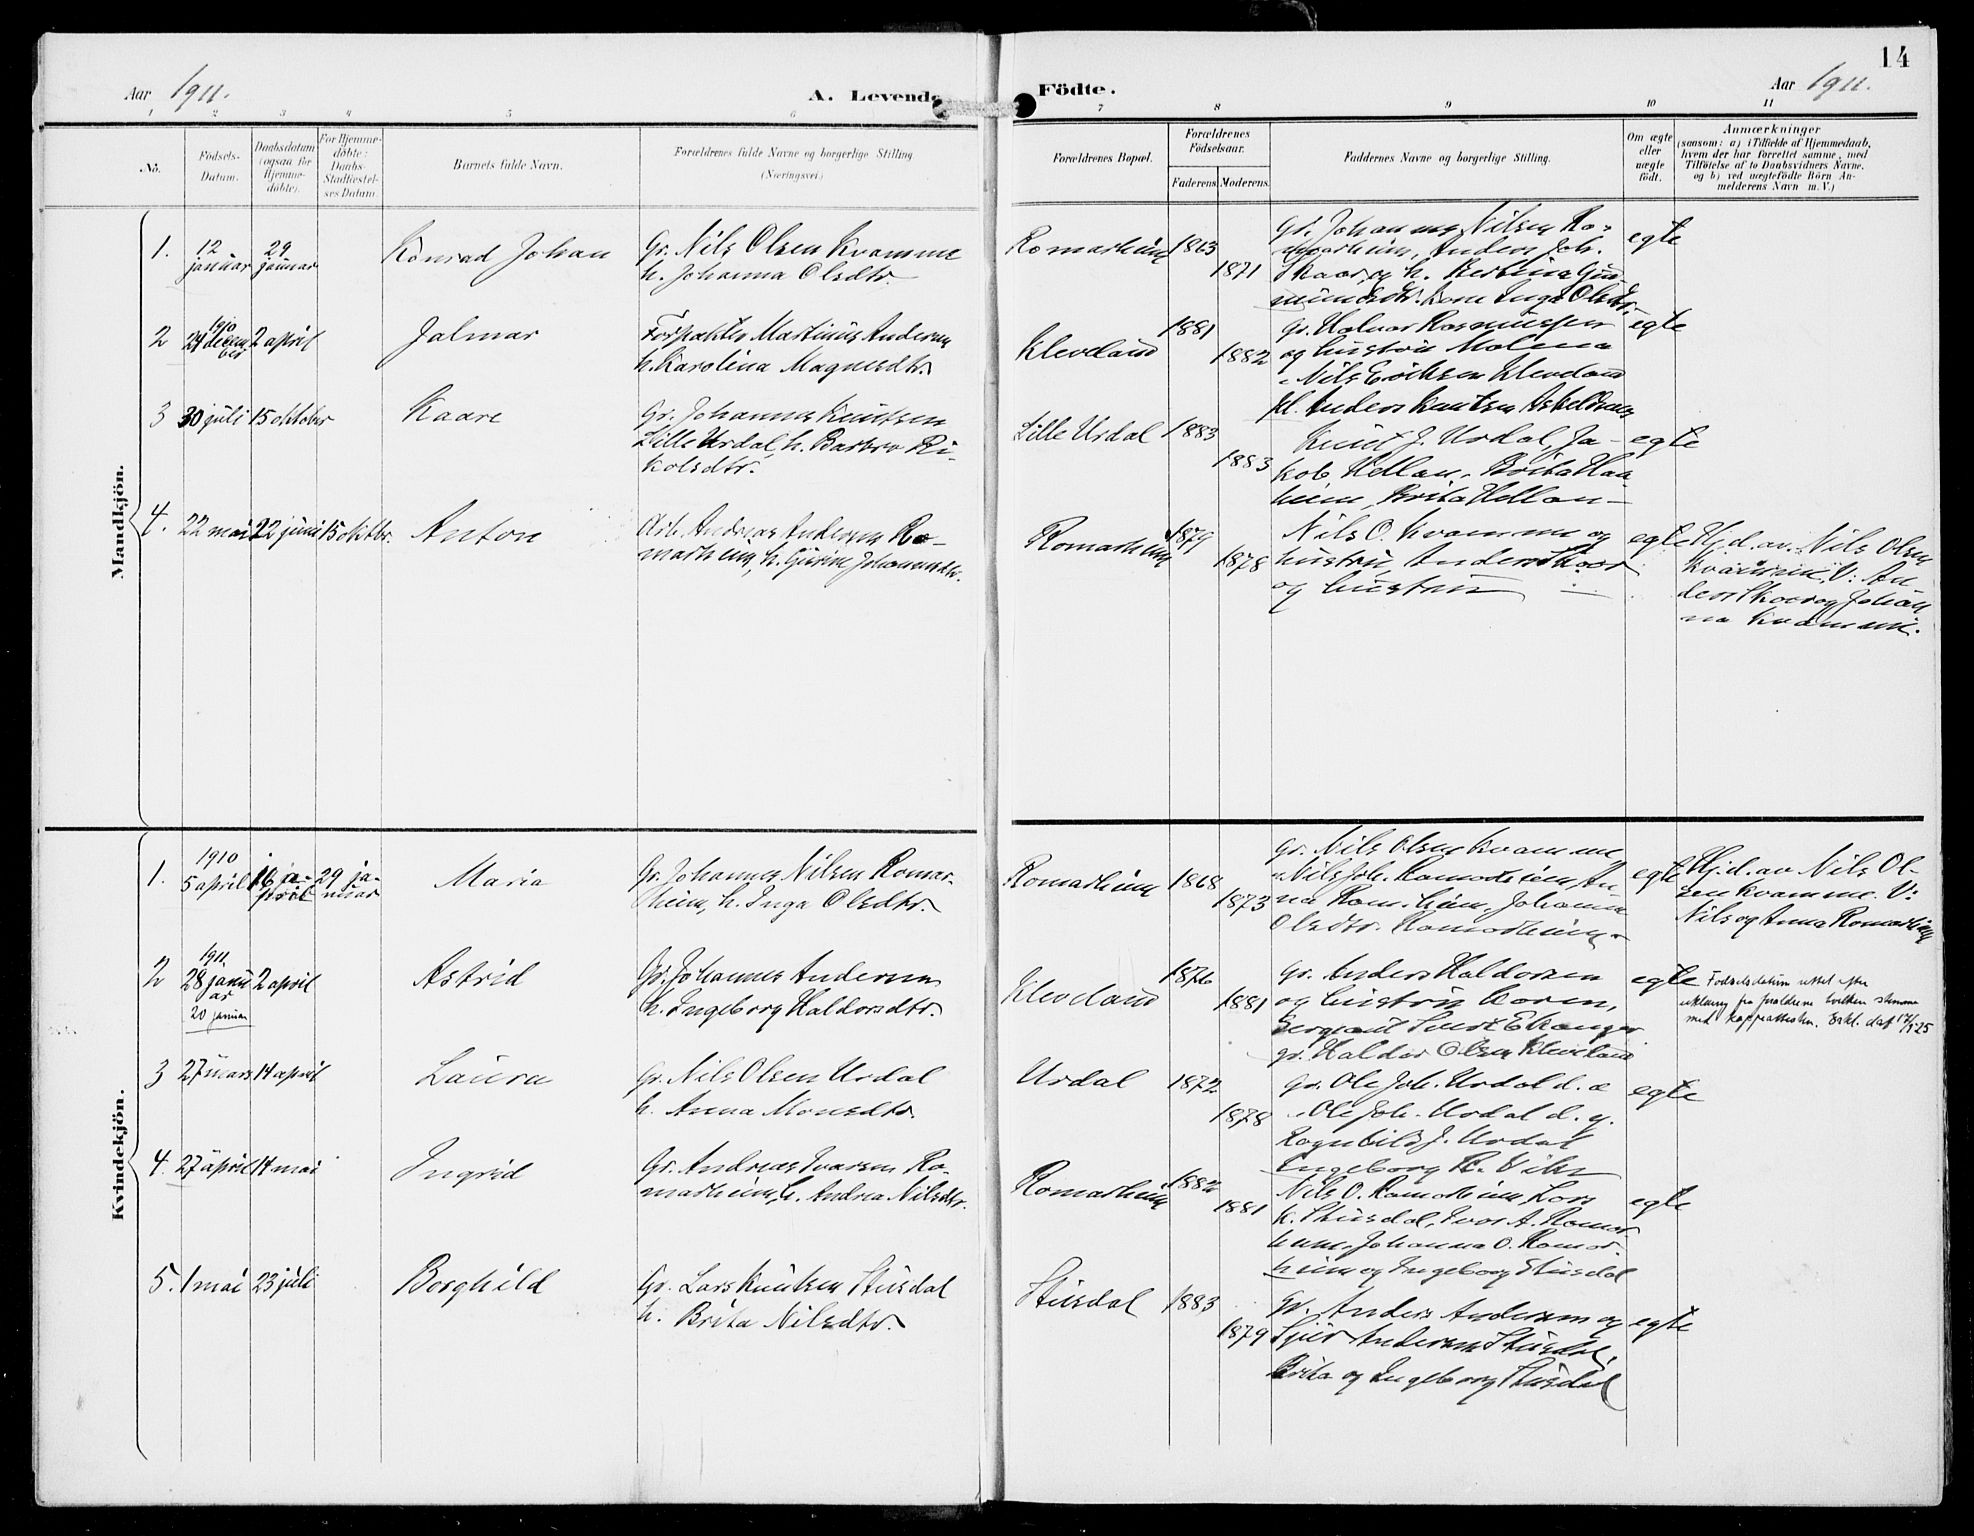 14
Aar 1911.
A. Levende
Födte.
Aar 1911.
1 2 3 4 5 6 7 8 9 10 11
No.
Födsels-
Datum.
Daabsdatum
(ogsaa for
Hjemme-
döbte).
For Hjemme-
döbte:
Daabs-
Stadfæstel-
ses Datum.
Barnets fulde Navn.
Forældrenes fulde Navne og borgerlige Stilling
(Næringsvei.)
Forældrenes Bopæl.
Forældrenes
Födselsaar.
Faderens
Moderens.
Faddernes Navne og borgerlige Stilling.
Om ægte
eller
uægte
födt.
Anmærkninger
(saasom: a) i Tilfælde af Hjemmedaab,
hvem der har forrettet samme, med
Tilföielse af to Daabsvidners Navne,
og b) ved uægtefödte Börn An-
melderens Navn m. V.)
Mandkjön.
1.
12
januar
29
januar
Konrad Johan
Gr. Nils Olsen Kvamme
h. Johanna Olsdtr.
Romarheim
1863
1871
Gr. Johannes Nilsen Ro-
marheim, Anders Joh.
Skaar, og h. Bertina Gud
mundsdtr. kone Inga Olsdtr.
egte
2
1910
24 decem
ber
2 april
Jalmar
Forpakter Martinus Andersen
h. Karolina Magnesdtr.
Kleveland
1881
1882
gr. Halvor Rasmussen
og hustru Malena
Nils Eriksen Kleveland
pl. Anders Knutsen
egte
3
30 juli
15 oktober
Kaare
Gr. Johannes Knutsen
Lille Urdal, h. Barbro Ri-
kolsdtr.
Lille Urdal
1883
1883
Knut J. Urdal, Ja-
kob Hellan, Brita Haa
heim, Brita Hellan
egte
4.
22 mai
22 juni
15 oktbr.
Anton
Arb. Andreas Andersen Ro-
marheim, h. Gurine Johannesdtr.
Romarheim
1879
1878
Nils O. Kvamme og
hustru, Anders Skaar
og hustru
egte
Hj.d. av Nils Olsen
Kvamme. V: An
ders Skaar og Johan
na Kvamme.
Kvindekjön.
1.
1910
5 april
16 ja-
29 ja-
nuar
Maria
Gr. Johannes Nilsen Romar-
heim, h. Inga Olsdtr.
Romarheim
1868
1873
gr. Nils Olsen Kvamme,
Nils Joh. Romarheim, An
na Romarheim, Johanna
Olsdtr. Romarheim.
egte
Hj.d. av Nils Ol-
sen Kvamme. V:
Nils og Anna Romarheim
2
1911
28 janu
ar
20 januar
2 april
Astrid
Gr. Johannes Andersen
h. Ingeborg Haldorsdtr.
Kleveland
1876
1881
gr. Anders Haldorsen
og hustru Karen,
Sergeant Eikanger
gr. Haldor Olsen Kleveland
egte
Fødselsdatum rettet efter
erklæring fra forældrene hvilken stemmer
med koppeattesten. Erkl. dat 17/1 25
3
27 mars
14 april
Laura
Gr. Nils Olsen Urdal
h. Anna Monsdtr.
Urdal
1872
1878
gr. Ole Joh. Urdal d. e
Ole Joh. Urdal d. y.
Ragnhild J. Urdal
Ingeborg R. Vike
egte
4.
27 april
14 mai
Ingrid
Gr. Andreas Ivarsen Ro-
marheim, h. Andrea Nilsdtr.
Romarheim
1882
1881
Nils O. Romarheim, Lars
K. Stusdal, Ivar A. Romar
heim, Johanna O. Romar-
heim og Ingeborg Stusdal
egte
5.
1 mai
23 juli
Borghild
Gr. Lars Knutsen Stusdal
h. Brita Nilsdtr.
Stusdal
1883
1879
Gr. Anders Andersen og
Sjur Andersen Stusdal,
Brita og Ingeborg Stusdal
egte